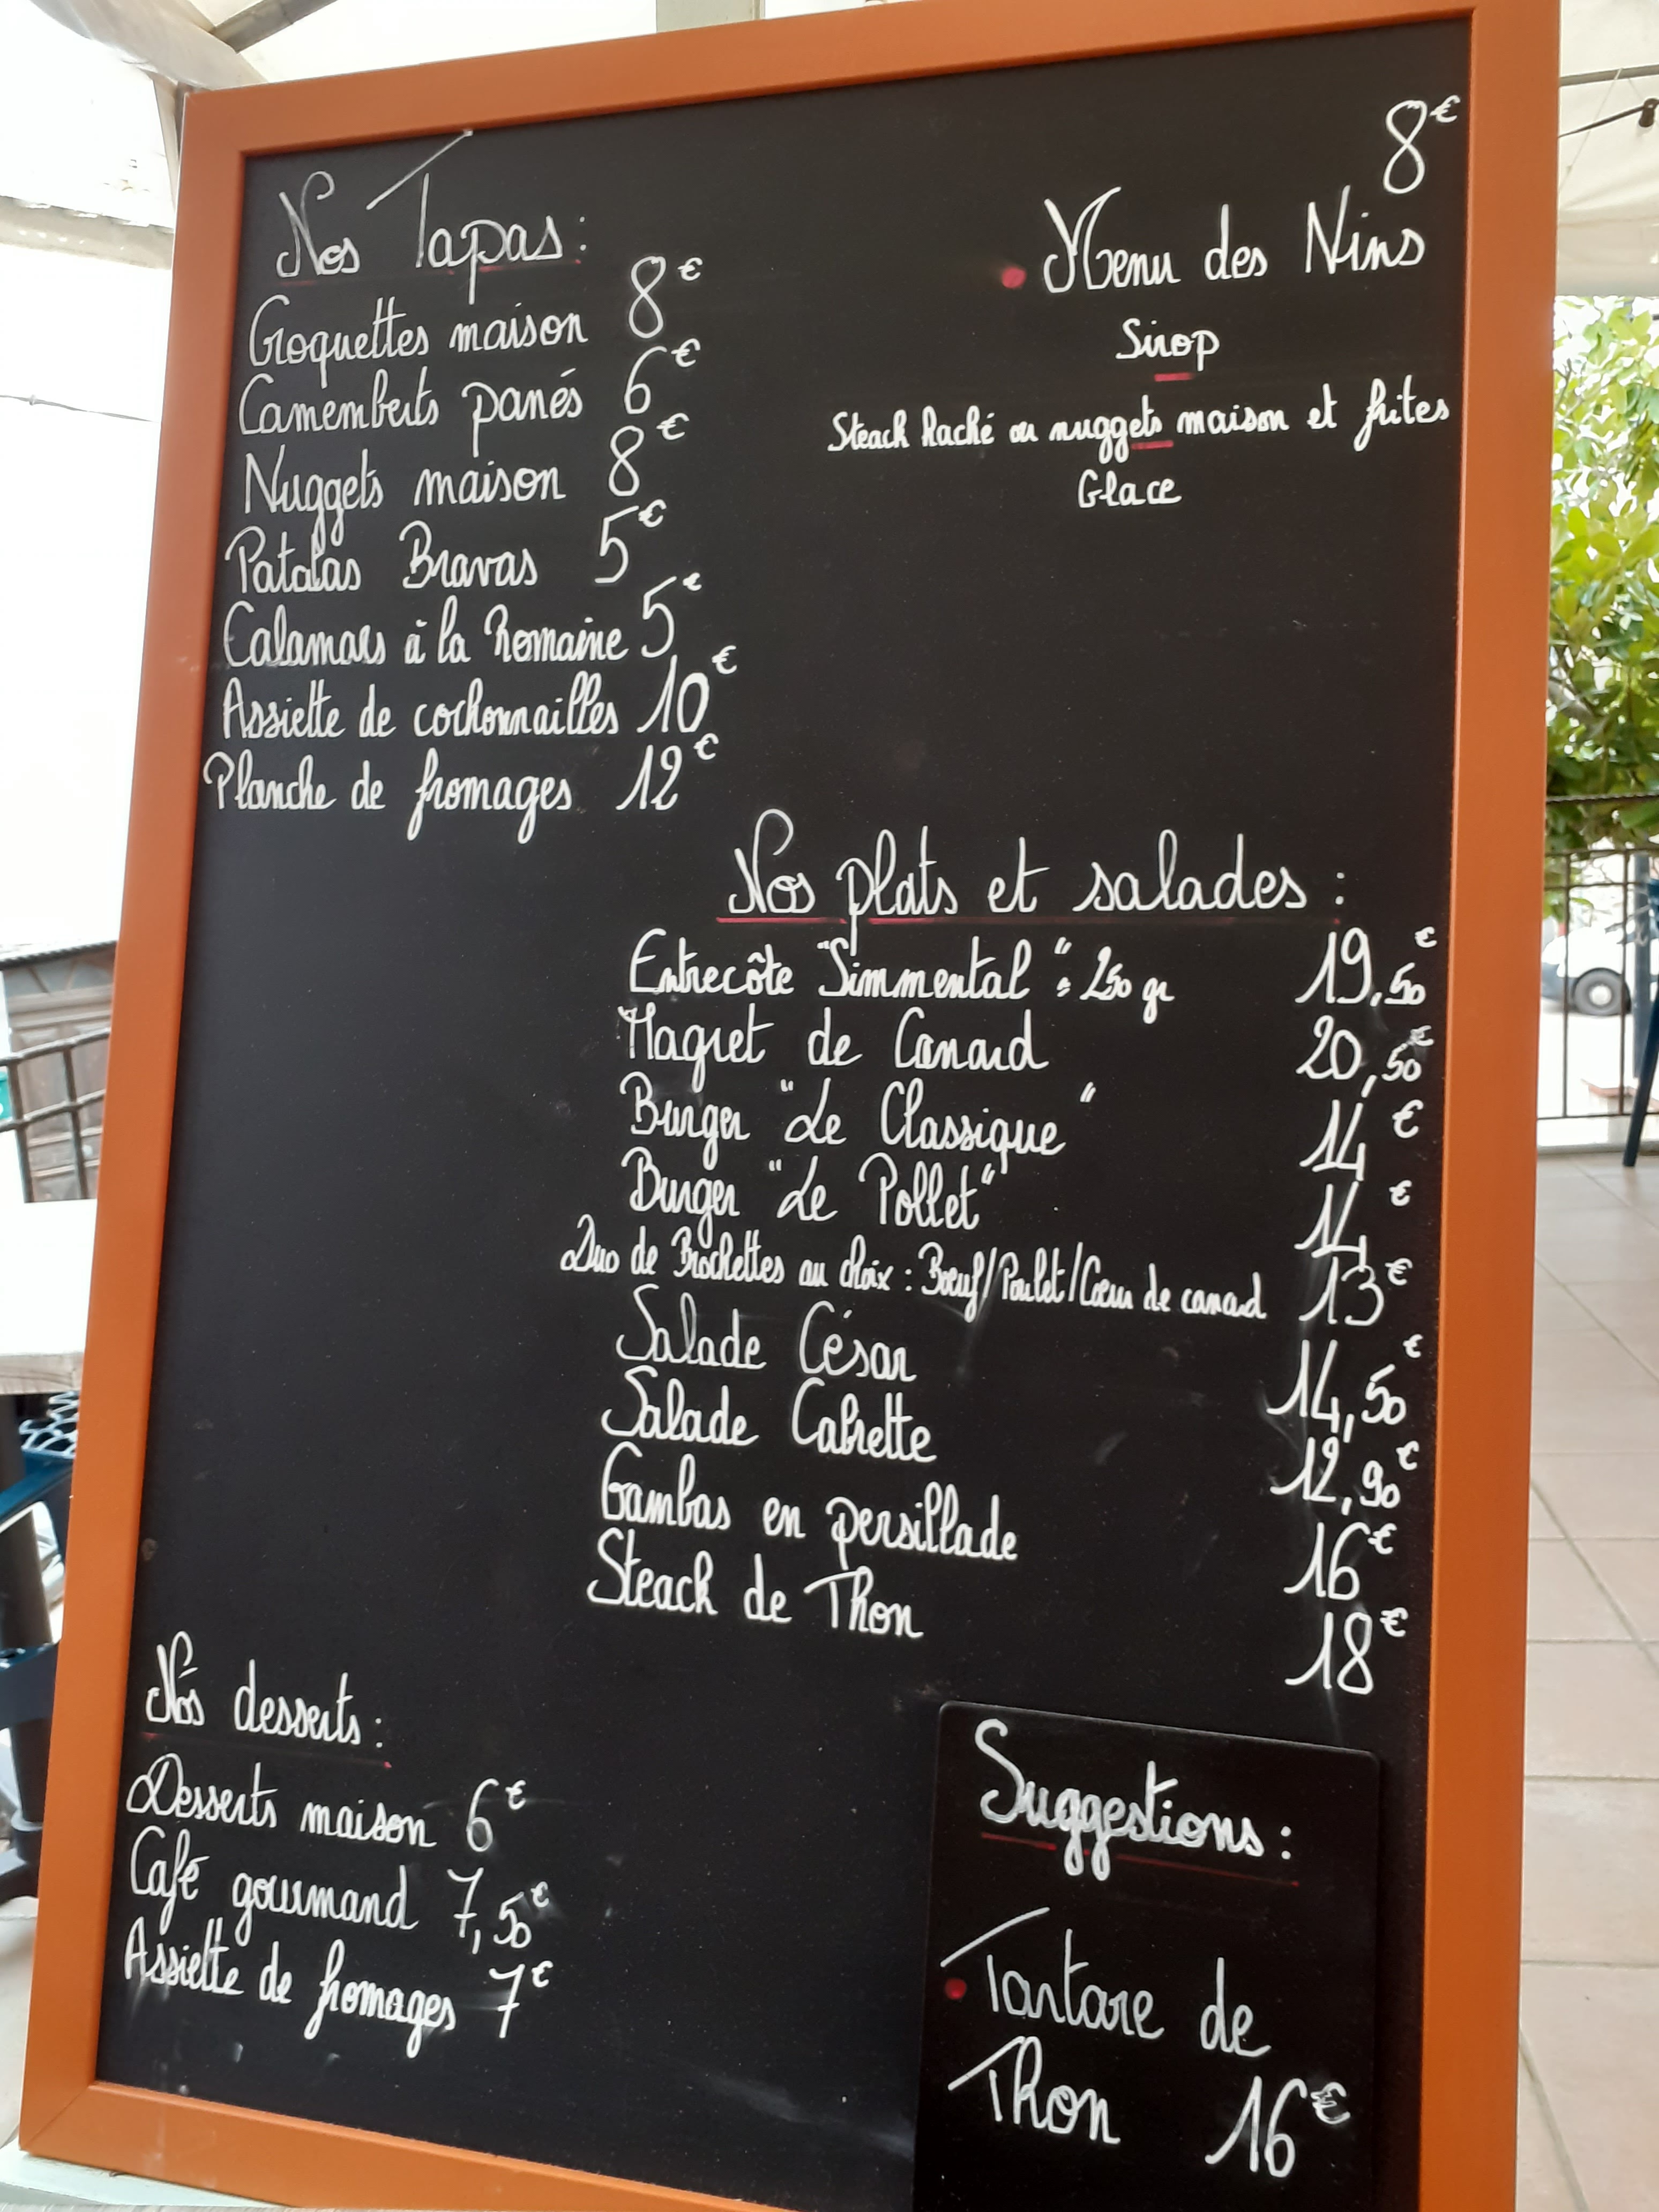 Nos Tapas:
Croquettes maison 8€
Camemberts panés 6€
Nuggets maison 8€
Patatas Bravas 5€
Calamars à la Romaine 5€
Assiette de cochonnailles 10€
Planche de fromages 12€
8€
Menu des Nins
Sirop
Steack haché ou nuggets maison et frites
Glace
Nos plats et salades :
Entrecôte "Simmental" : 250 gr 19,50€
Magret de Canard 20,50€
Burger "Le Classique" 14€
Burger "Le Pollet" 14€
Duo de Brochettes au choix : Boeuf/Poulet/Coeur de canard 13€
Salade César 14,50€
Salade Cabrette 12,90€
Gambas en persillade 16€
Steack de Thon 18€
Nos desserts :
Desserts maison 6€
Café gourmand 7,50€
Assiette de fromages 7€
Suggestions :
Tartare de
Thon 16€